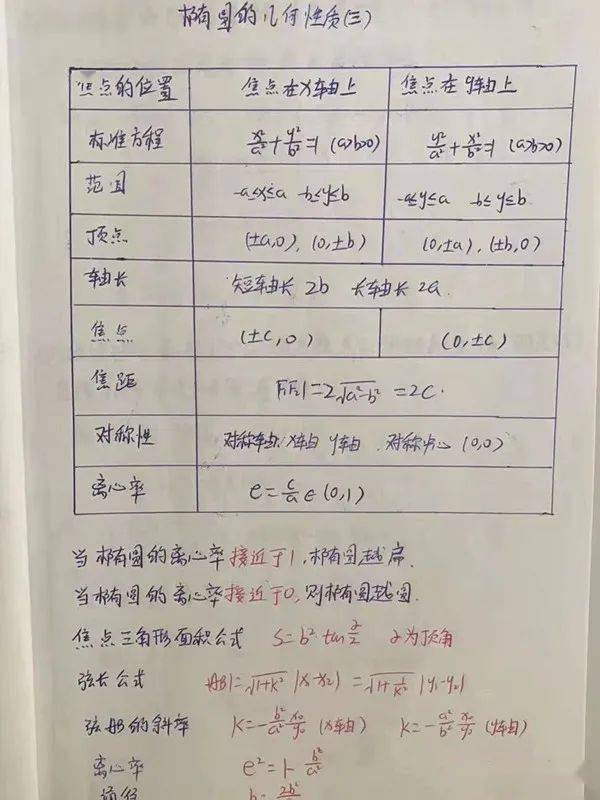 椭圆的几何性质(三)
焦点的位置 焦点在x轴上 焦点在y轴上
标准方程 x²/a²+y²/b²=1 (a>b>0) y²/a²+x²/b²=1 (a>b>0)
范围 -a≤x≤a -b≤y≤b -a≤y≤a -b≤y≤b
顶点 (±a,0), (0,±b) (0,±a), (±b,0)
轴长 短轴长 2b 长轴长 2a.
焦点 (±c,0) (0,±c)
焦距 |F₁F₂|=2√(a²-b²)=2c.
对称性 对称轴: x轴 y轴. 对称中心 (0,0)
离心率 e=c/a∈(0,1)
当椭圆的离心率接近于1,椭圆越扁.
当椭圆的离心率接近于0,则椭圆越圆.
焦点三角形面积公式 S=b²·tan α/2 α为顶角
弦长公式 |AB|=√(1+k²)|x₁-x₂|=√(1+1/k²)|y₁-y₂|
弦AB的斜率 k=-b²/a² x₀/y₀ (x轴) k=-a²/b² x₀/y₀ (y轴)
离心率 e²=1-b²/a²
通径